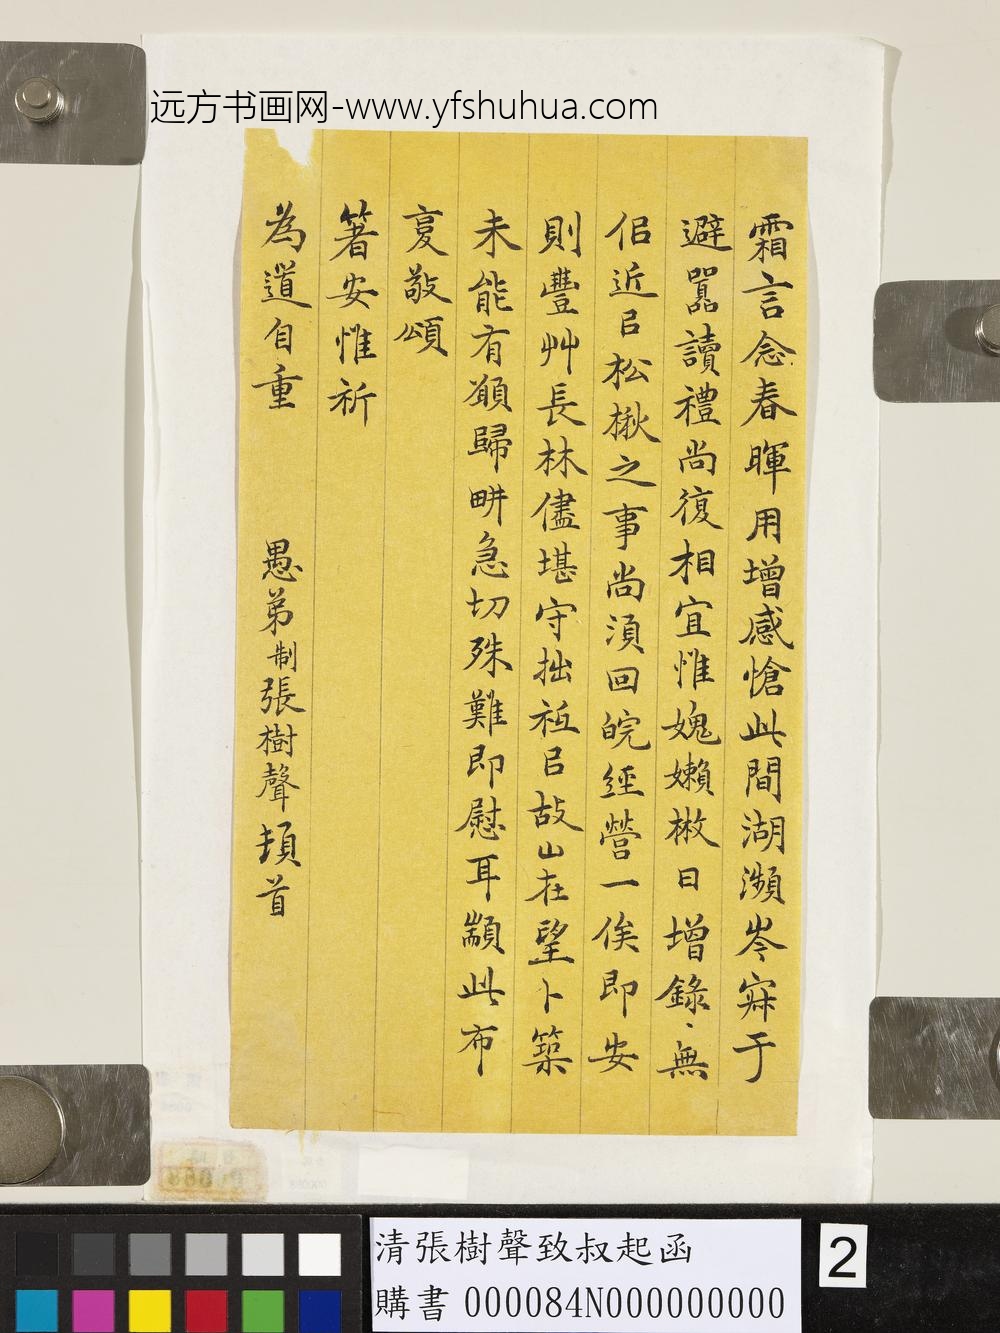 远方书画网-www.yfshuhua.com
霜言念春暉用增感愴此間湖瀕岑寂于
避囂讀禮尚復相宜惟媿嬾散日增錄、無
佀近㠯松楸之事尚須回皖經營一俟即安
則豐艸長林儘堪守拙衹㠯故山在望卜築
未能有願歸畊急切殊難即慰耳顓此布
覆敬頌
箸安惟祈
為道自重
愚弟制張樹聲頓首
清張樹聲致叔起函
購書 000084N000000000
2